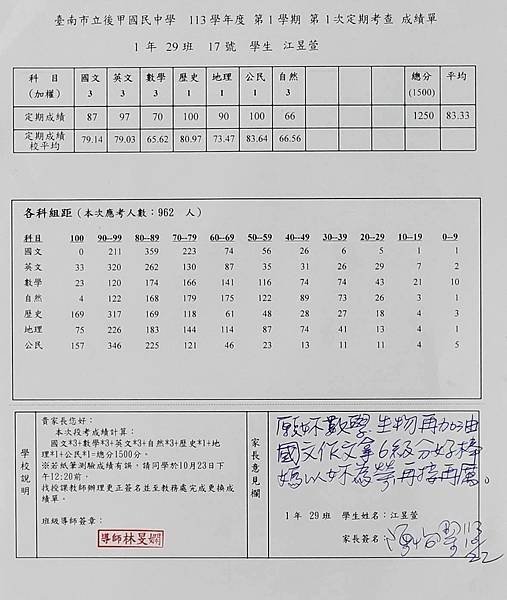 臺南市立後甲國民中學 113學年度 第1學期 第1次定期考查 成績單
1 年 29 班 17 號 學生 江昱萱
科 目 (加權) 國文 3 英文 3 數學 3 歷史 1 地理 1 公民 1 自然 3 總分 (1500) 平均
定期成績 87 97 70 100 90 100 66 1250 83.33
定期成績校平均 79.14 79.03 65.62 80.97 73.47 83.64 66.56
各科組距(本次應考人數:962 人)
科目 100 90--99 80--89 70--79 60--69 50--59 40--49 30--39 20--29 10--19 0--9
國文 0 211 359 223 74 56 26 6 5 1 1
英文 33 320 262 130 87 35 31 26 29 7 2
數學 23 120 174 166 141 116 74 74 43 21 10
自然 4 122 168 179 175 122 89 73 26 3 1
歷史 169 317 169 118 61 48 28 27 18 4 3
地理 75 226 183 144 114 87 74 41 13 4 1
公民 157 346 225 121 46 23 13 11 11 4 5
學校說明
貴家長您好:
本次段考成績計算:
國文*3+數學*3+英文*3+自然*3+歷史*1+地
理*1+公民*1=總分1500分。
※若紙筆測驗成績有誤,請同學於10月23日下
午12:20前,
找授課教師辦理更正簽名並至教務處完成更換成
績單。
班級導師簽章:
導師 林旻嫻
家長意見欄
願妳數學、生物再加油
國文作文拿6級分好棒
媽以妳為榮再接再厲。
1 年 29班 學生姓名:江昱萱
家長簽名: